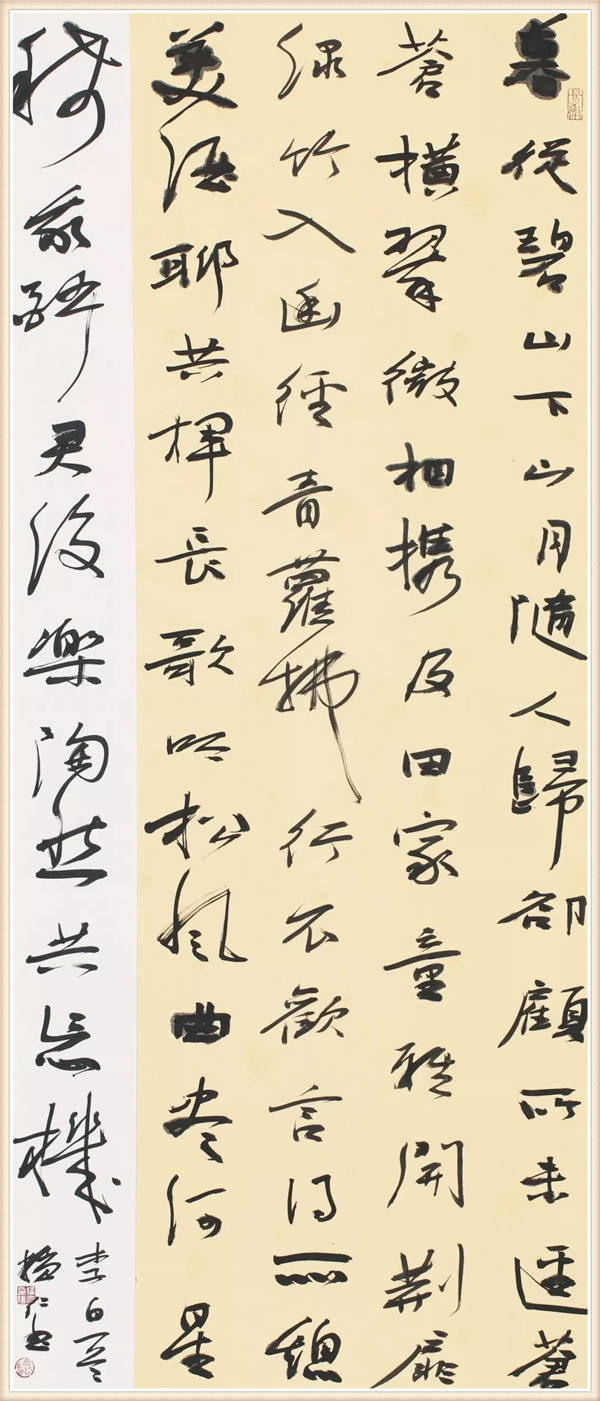 暮從碧山下山月隨人歸卻顧所来徑蒼
蒼橫翠微相携及田家童稚開荊扉
綠竹入幽徑青蘿拂行衣歡言得所憩
美酒聊共揮長歌吟松風曲尽河星
稀我醉君復樂陶然共忘機
李白
仁書